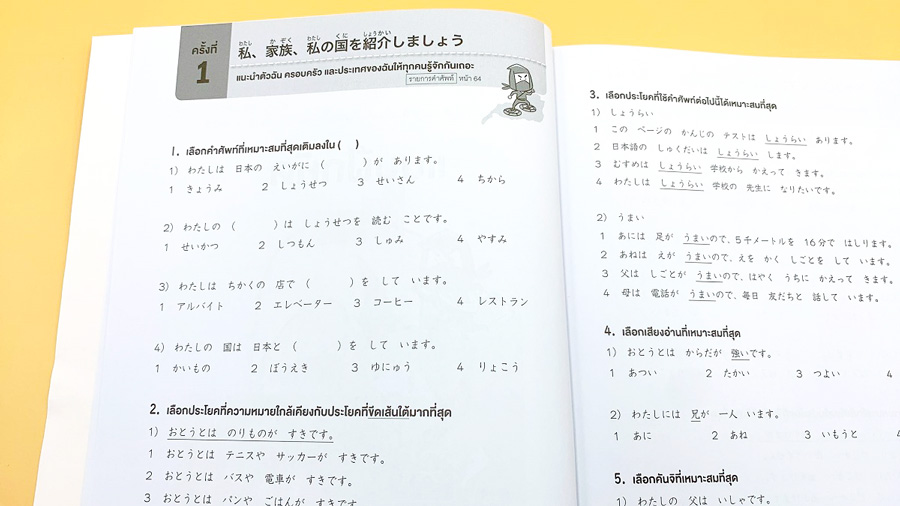 ครั้งที่
1
わたし か ぞく わたし くに しょうかい
私、家族、私の国を紹介しましょう
แนะนำตัวฉัน ครอบครัว และประเทศของฉันให้ทุกคนรู้จักกันเถอะ
รายการคำศัพท์ หน้า 64
1. เลือกคำศัพท์ที่เหมาะสมที่สุดเติมลงใน ( )
1) わたしは 日本の えいがに ( )が あります。
1 きょうみ 2 しょうせつ 3 せいさん 4 ちから
2) わたしの ( )は しょうせつを 読む ことです。
1 せいかつ 2 しつもん 3 しゅみ 4 やすみ
3) わたしは ちかくの 店で ( )を して います。
1 アルバイト 2 エレベーター 3 コーヒー 4 レストラン
4) わたしの 国は 日本と ( )を して います。
1 かいもの 2 ぼうえき 3 ゆにゅう 4 りょこう
2. เลือกประโยคที่ความหมายใกล้เคียงกับประโยคที่ขีดเส้นใต้มากที่สุด
1) おとうとは のりものが すきです。
1 おとうとは テニスや サッカーが すきです。
2 おとうとは バスや 電車が すきです。
3 おとうとは パンや ごはんが すきです。
3. เลือกประโยคที่ใช้คำศัพท์ต่อไปนี้ได้เหมาะสมที่สุด
1) しょうらい
1 この ページの かんじの テストは しょうらい あります。
2 日本語の しゅくだいは しょうらい します。
3 むすめは しょうらい 学校から かえって きます。
4 わたしは しょうらい 学校の 先生に なりたいです。
2) うまい
1 あには 足が うまいので、5千メートルを 16分で はしります。
2 あねは えが うまいので、えを かく しごとを して います。
3 父は しごとが うまいので、はやく うちに かえって きます。
4 母は 電話が うまいので、毎日 友だちと 話して います。
4. เลือกเสียงอ่านที่เหมาะสมที่สุด
1) おとうとは からだが 強いです。
1 あつい 2 たかい 3 つよい 4
2) わたしには 兄が 一人 います。
1 あに 2 あね 3 いもうと
5. เลือกคันจิที่เหมาะสมที่สุด
1) わたしの 父は いしゃです。